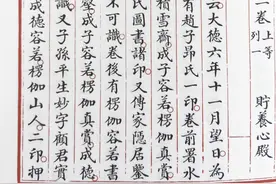 一卷上等 貯養心殿
列一
云大德六年十一月望日為
有趙子昂氏一印卷前署水
積雪齋成子容若楞伽真賞
氏圖書諸印又傳家隱居鑒
不可識卷後有楞伽容若書
堅成子容若楞伽真賞成德
識又子孫平生妙字顧君實
成德容若楞伽山人二印押